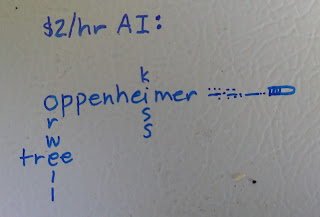 $2/hr AI:
k
oppenheimer
r s
w s
tree
l
l